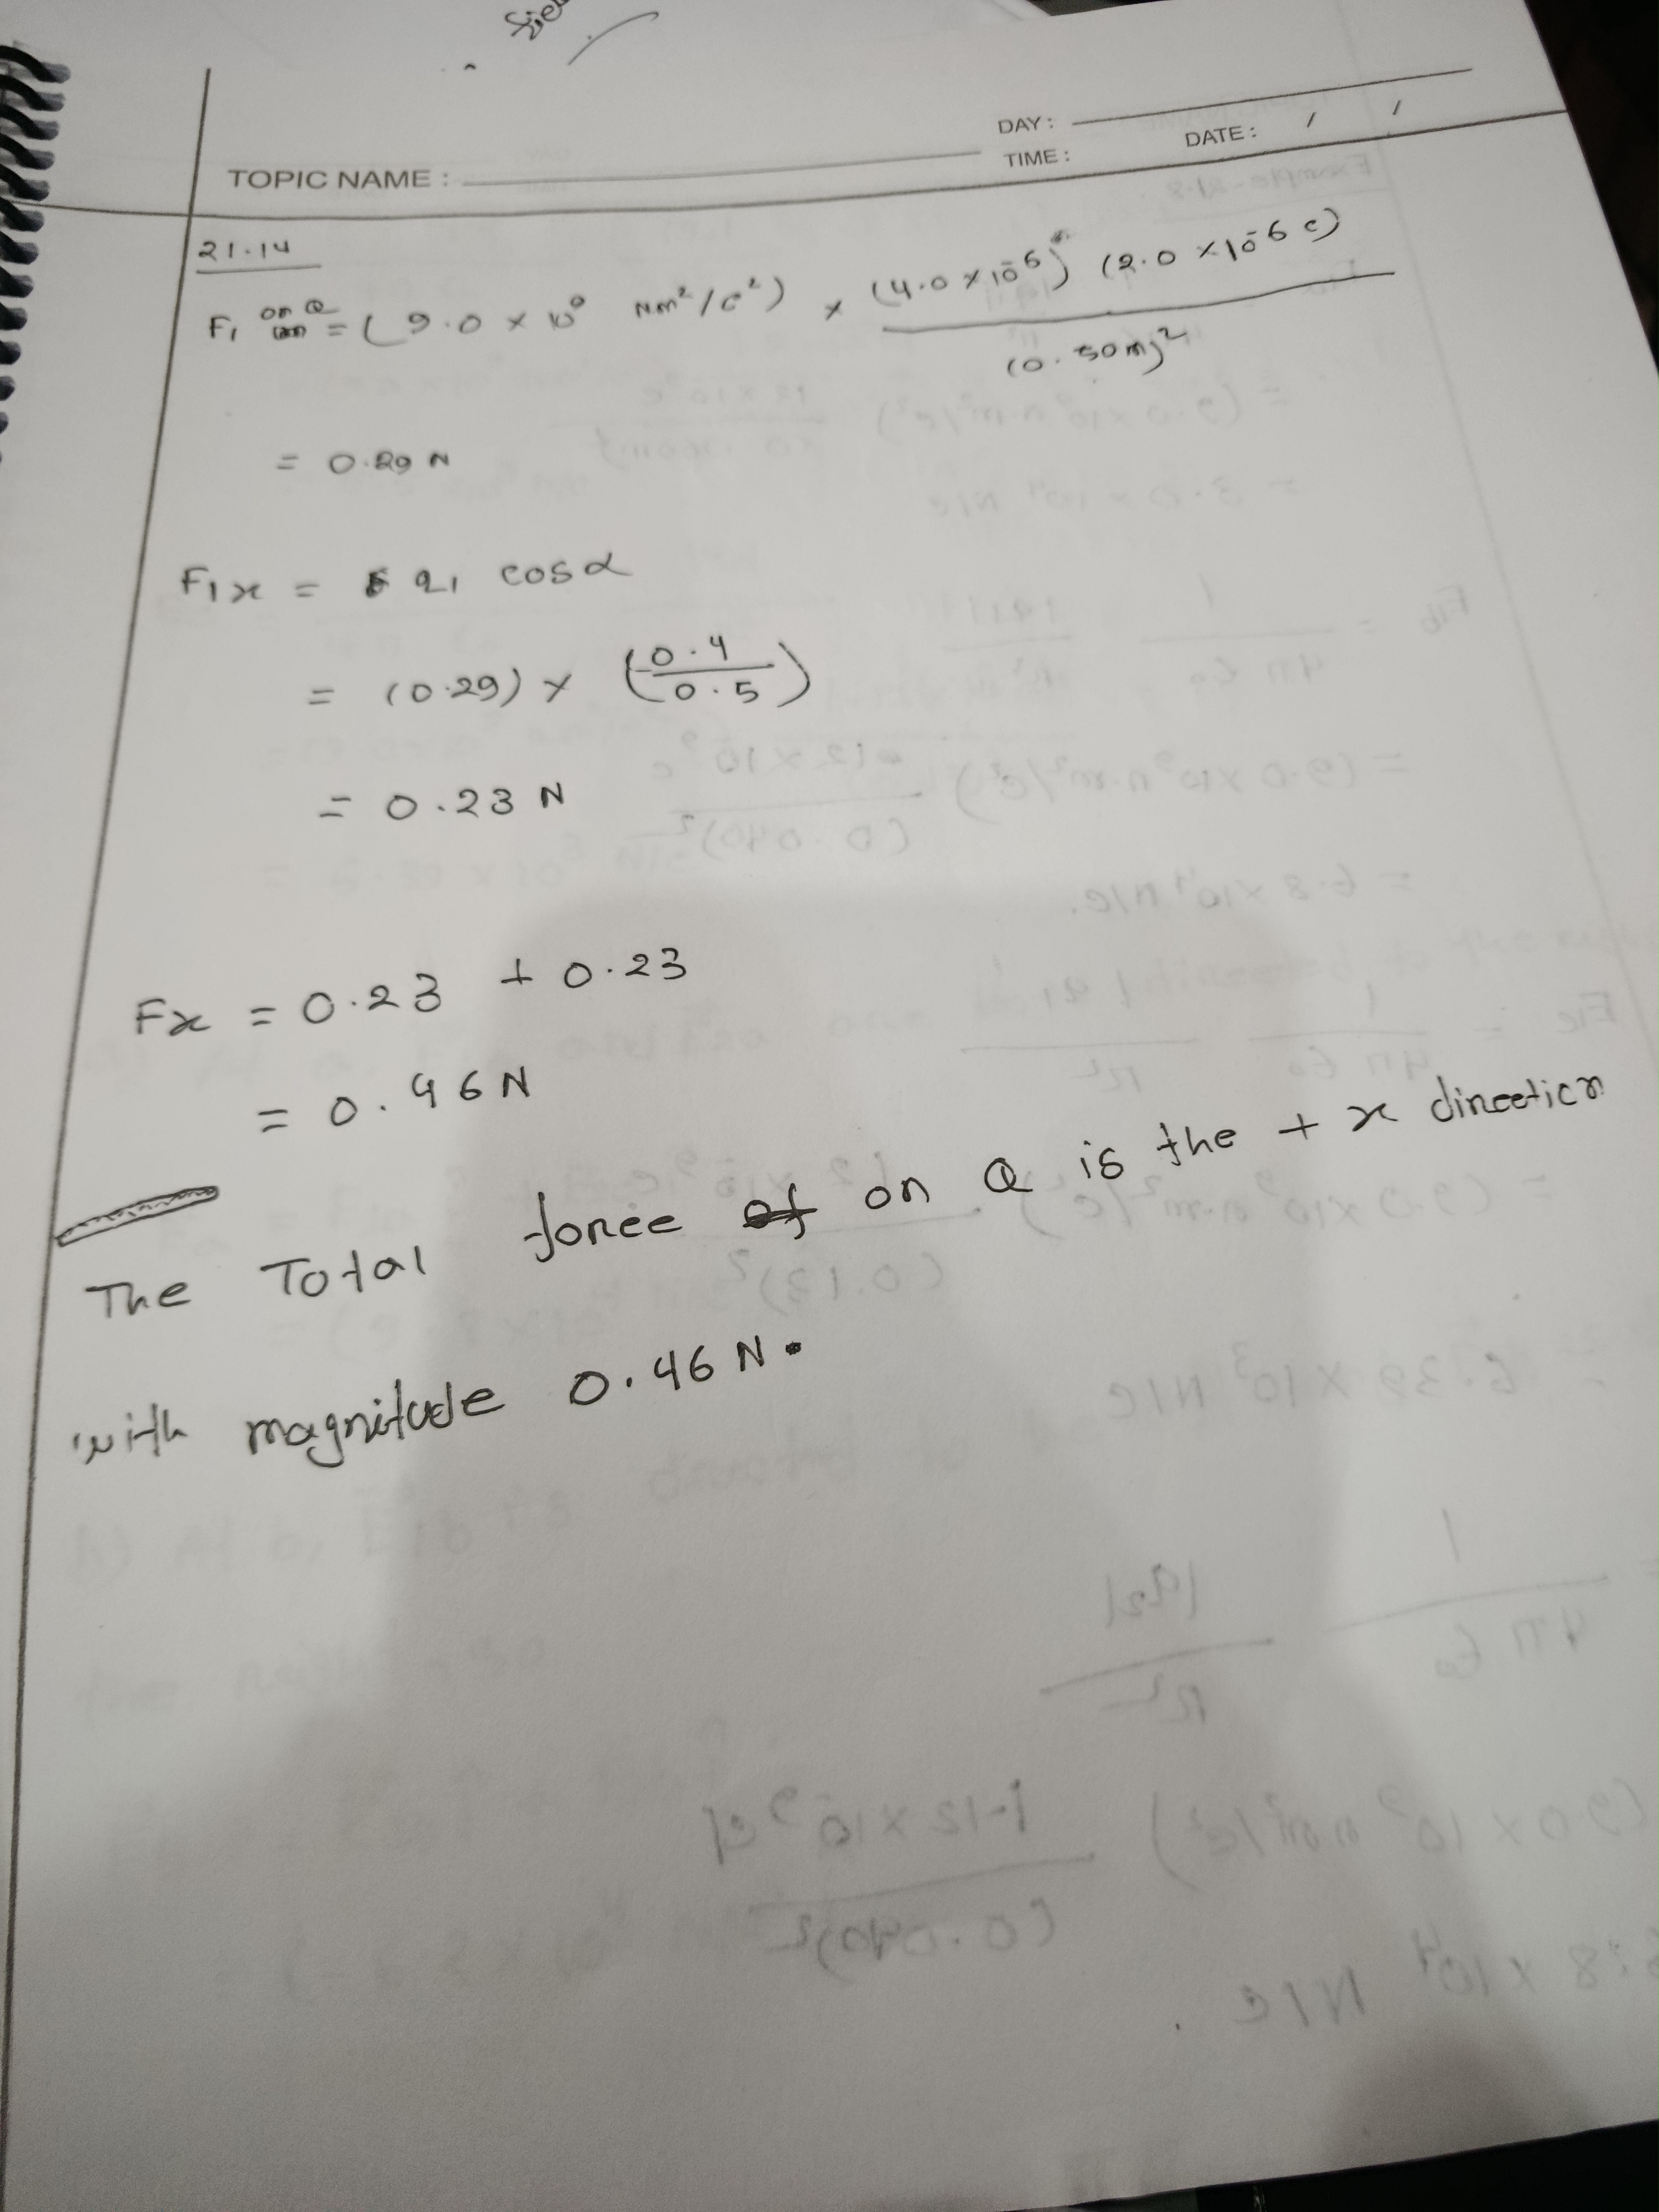 DAY:
TOPIC NAME : TIME : DATE : / /
21.14
F₁ on Q = (9.0 × 10⁹ Nm²/C²) × (4.0 × 10⁻⁶) (2.0 × 10⁻⁶ C)
(0.50m)²
= 0.29 N
F₁x = q₁ cosα
= (0.29) × (0.4/0.5)
= 0.23 N
Fx = 0.23 + 0.23
= 0.46 N
The Total force of on Q is the + x direction
with magnitude 0.46 N.